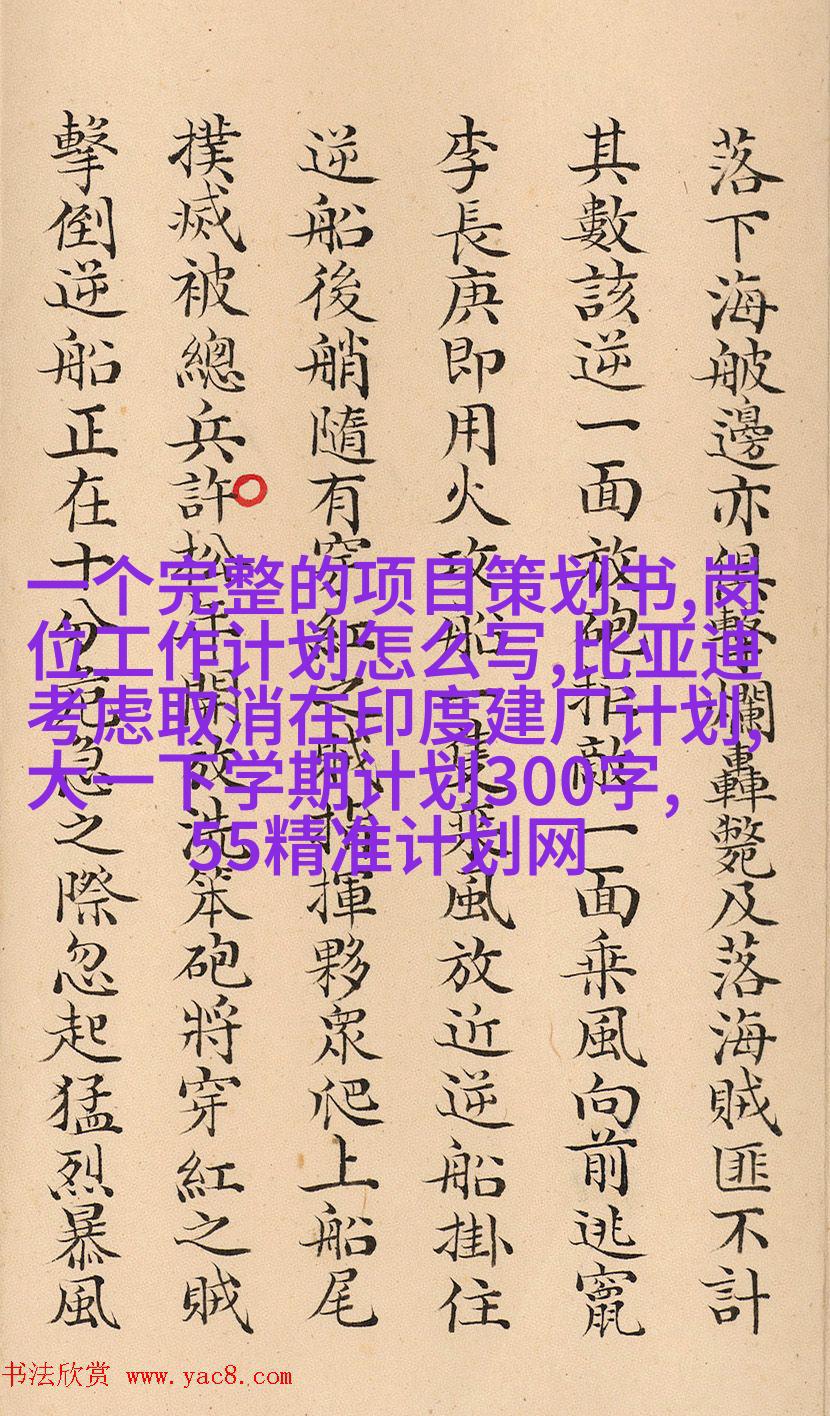 落下海邊亦俱擊爛轟斃及落海賊匪不計
其數該逆一面放砲拒敵一面乗風向前逃竄
李長庚即用火攻船一隻乗風放近逆船掛住
逆船後艄隨有穿紅之賊指揮夥眾爬上船尾
撲滅被總兵許松年開放洗笨砲將穿紅之賊
擊倒逆船正在十分危急之際忽起猛烈暴風
一个完整的项目策划书,岗
位工作计划怎么写,比亚迪
考虑取消在印度建厂计划,
大一下学期计划300字,
55精准计划网
书法欣赏 www.yac8.com